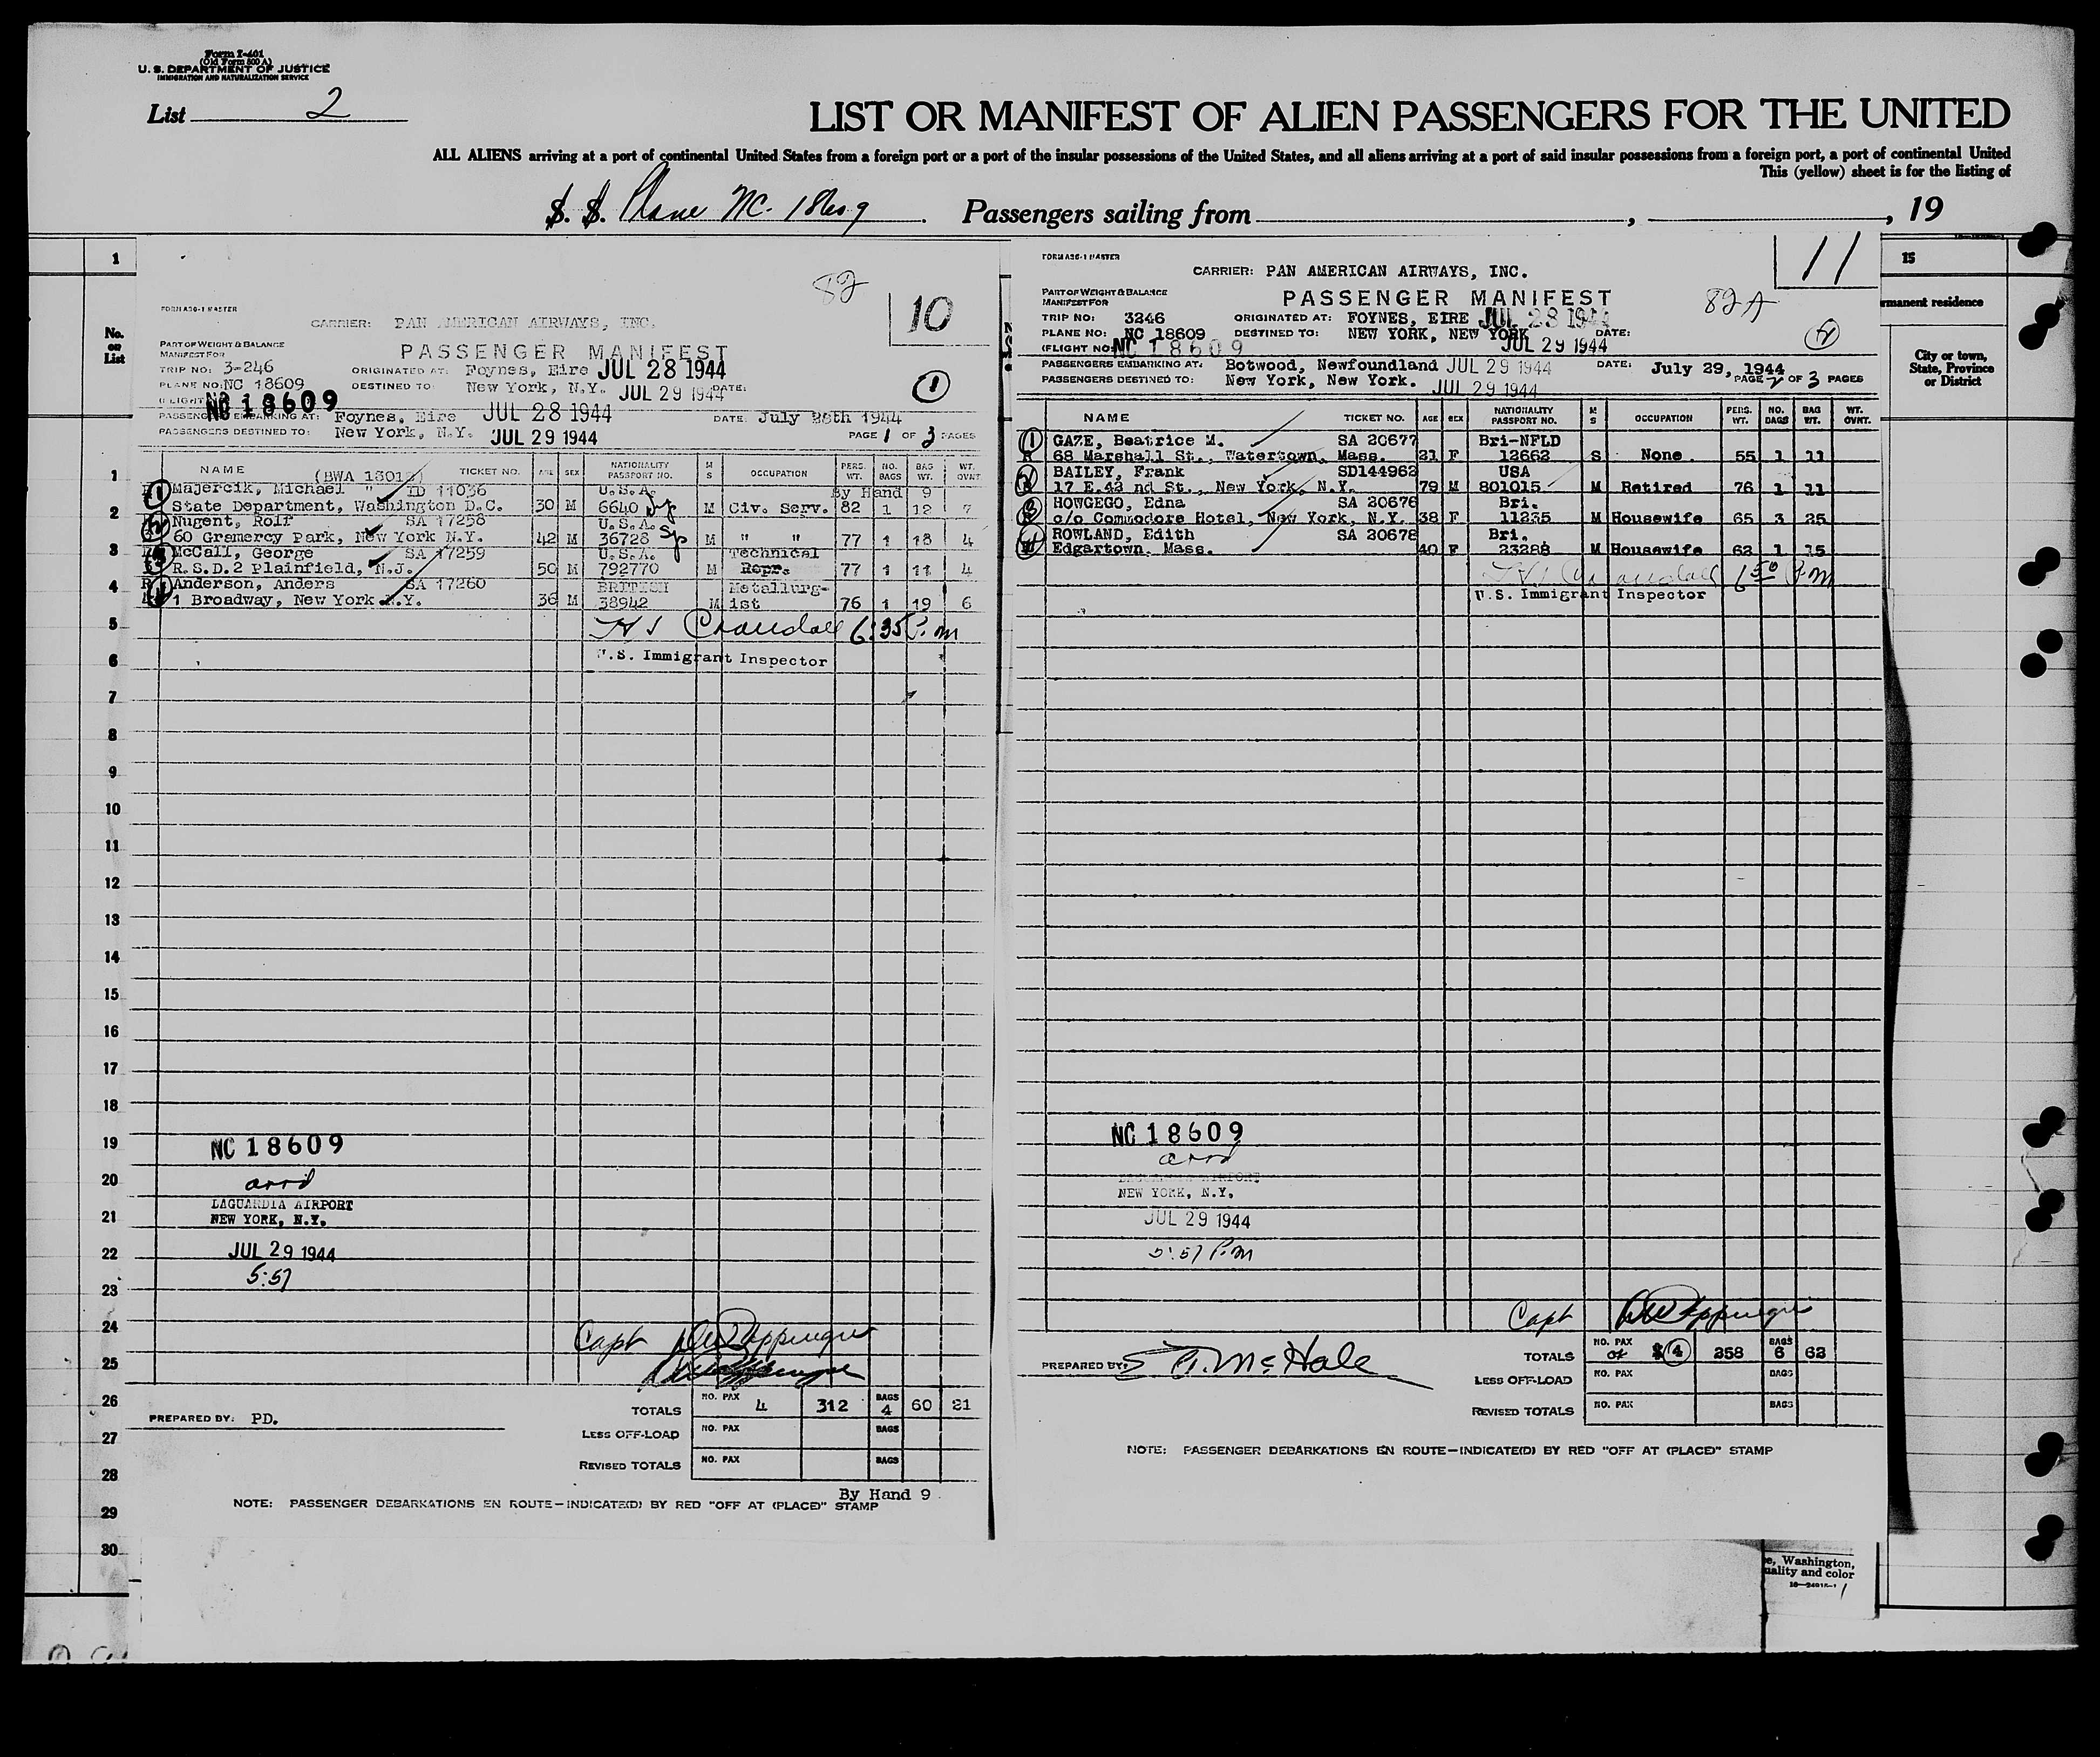 Form I-401
(Old Form 500 A)
U. S. DEPARTMENT OF JUSTICE
IMMIGRATION AND NATURALIZATION SERVICE
List 2
LIST OR MANIFEST OF ALIEN PASSENGERS FOR THE UNITED
ALL ALIENS arriving at a port of continental United States from a foreign port or a port of the insular possessions of the United States, and all aliens arriving at a port of said insular possessions from a foreign port, a port of continental United
This (yellow) sheet is for the listing of
S. S. Plane NC. 18609 Passengers sailing from , , 19
No. on List
1
2
3
4
5
6
7
8
9
10
11
12
13
14
15
16
17
18
19
20
21
22
23
24
25
26
27
28
29
30
82
10
FORM A36-1 MASTER
CARRIER: PAN AMERICAN AIRWAYS, INC.
PART OF WEIGHT & BALANCE
MANIFEST FOR
PASSENGER MANIFEST
TRIP NO: 3-246 ORIGINATED AT: Foynes, Eire JUL 28 1944
PLANE NO: NC 18609 DESTINED TO: New York, N.Y. JUL 29 1944 DATE:
1
(FLIGHT NC 18609
PASSENGERS EMBARKING AT: Foynes, Eire JUL 28 1944 DATE: July 28th 1944
PASSENGERS DESTINED TO: New York, N.Y. JUL 29 1944 PAGE 1 OF 3 PAGES
NAME TICKET NO. AGE SEX NATIONALITY PASSPORT NO. M S OCCUPATION PERS. WT. NO. BAGS BAG WT. WT. OVNT
1 Majercik, Michael " ID 11036 U.S.A. By Hand 9
State Department, Washington D.C. 30 M 6640 M Civ. Serv. 82 1 12 7
2 Nugent, Rolf SA 17258 U.S.A.
60 Gramercy Park, New York N.Y. 42 M 36728 Sp M " " 77 1 18 4
3 McCall, George SA 17259 U.S.A. Technical
R.S.D.2 Plainfield, N.J. 50 M 792770 M Repr. 77 1 11 4
4 Anderson, Anders SA 17260 BRITISH Metallurg-
1 Broadway, New York N.Y. 36 M 38942 M ist 76 1 19 6
Crandall 6:35 P.m
U.S. Immigrant Inspector
NC 18609
arrd
LAGUARDIA AIRPORT
NEW YORK, N.Y.
JUL 29 1944
5:57
Capt
PREPARED BY: PD.
TOTALS NO. PAX 4 312 BAGS 4 60 21
LESS OFF-LOAD NO. PAX BAGS
REVISED TOTALS NO. PAX BAGS
By Hand 9
NOTE: PASSENGER DEBARKATIONS EN ROUTE—INDICATE(D) BY RED "OFF AT (PLACE)" STAMP
11
FORM A36-1 MASTER
CARRIER: PAN AMERICAN AIRWAYS, INC.
PART OF WEIGHT & BALANCE
MANIFEST FOR
PASSENGER MANIFEST 82 A
TRIP NO: 3246 ORIGINATED AT: FOYNES, EIRE JUL 28 1944
PLANE NO: NC 18609 DESTINED TO: NEW YORK, NEW YORK DATE:
(FLIGHT NO: NC 18609 JUL 29 1944
PASSENGERS EMBARKING AT: Botwood, Newfoundland JUL 29 1944 DATE: July 29, 1944
PASSENGERS DESTINED TO: New York, New York. JUL 29 1944 PAGE 2 OF 3 PAGES
NAME TICKET NO. AGE SEX NATIONALITY PASSPORT NO. M S OCCUPATION PERS. WT. NO. BAGS BAG WT. WT. OVNT.
1 GAZE, Beatrice M. SA 20677 Bri-NFLD
68 Marshall St., Watertown, Mass. 21 F 12662 S None. 55 1 11
2 BAILEY, Frank SD144962 USA
17 E.42 nd St., New York, N.Y. 79 M 801015 M Retired 76 1 11
3 HOWGEGO, Edna SA 20676 Bri.
c/o Commodore Hotel, New York, N.Y. 38 F 11235 M Housewife 65 3 25
4 ROWLAND, Edith SA 20678 Bri.
Edgartown, Mass. 40 F 23288 M Housewife 62 1 15
Crandall 6 50 P.m
U.S. Immigrant Inspector
NC 18609
arrd
LAGUARDIA AIRPORT
NEW YORK, N.Y.
JUL 29 1944
5:57 P.m
Capt
PREPARED BY: McHale
TOTALS NO. PAX 4 258 BAGS 6 62
LESS OFF-LOAD NO. PAX BAGS
REVISED TOTALS NO. PAX BAGS
NOTE: PASSENGER DEBARKATIONS EN ROUTE—INDICATE(D) BY RED "OFF AT (PLACE)" STAMP
15
rmanent residence
City or town, State, Province or District
e, Washington,
uality and color